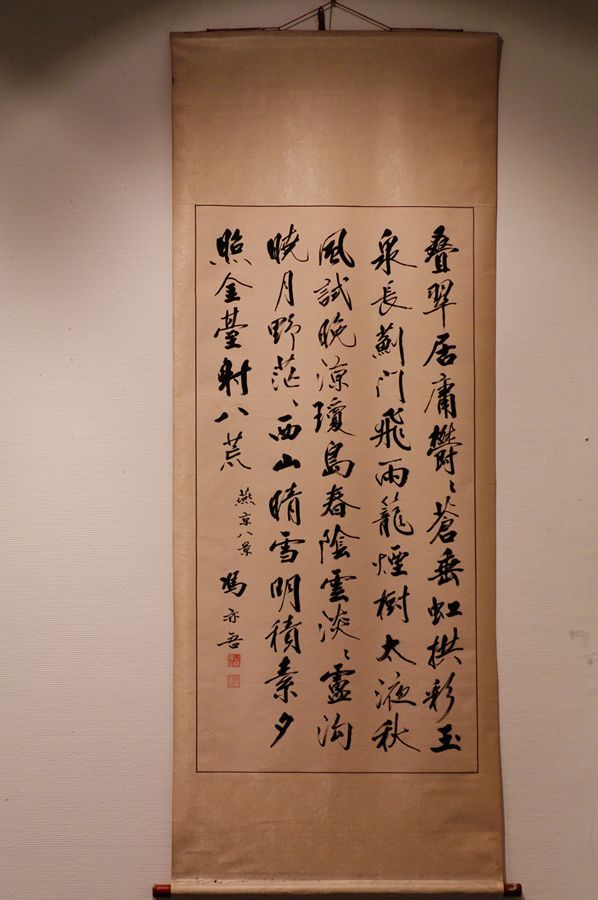 叠翠居庸鬱〻蒼垂虹拱彩玉
泉長薊門飛雨籠煙樹太液秋
風試晚涼瓊島春陰雲淡〻盧溝
曉月野茫〻西山晴雪明積素夕
照金臺射八荒
燕京八景
馮亦吾